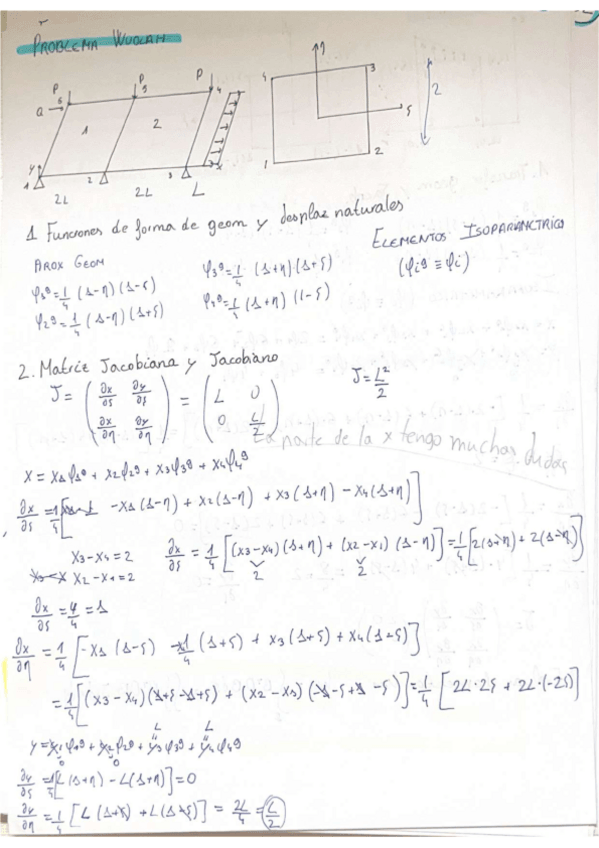 PROBLEMA WUOLAH
P P P
Q 6 5 4
1 2
y x
1 2 3
2L 2L L
4 η 3
ς
1 2
2
1 Funciones de forma de geom y desplaz naturales
AROX GEOM
ELEMENTOS ISOPARAMÉTRICOS
φ1g=1/4 (1-η)(1-ς) φ3g=1/4 (1+η)(1+ς) (φig ≡ φi)
φ2g=1/4 (1-η)(1+ς) φ4g=1/4 (1+η)(1-ς)
2. Matriz Jacobiana y Jacobiano
J = (∂x/∂ς ∂y/∂ς ; ∂x/∂η ∂y/∂η) = (L 0 ; 0 L/2) J=L²/2
La parte de la x tengo muchas dudas
x = x1φ1g + x2φ2g + x3φ3g + x4φ4g
∂x/∂ς = 1/4 [-x1(1-η) + x2(1-η) + x3(1+η) - x4(1+η)]
x3-x4=2 ∂x/∂ς = 1/4 [(x3-x4)(1+η) + (x2-x1)(1-η)] = 1/4 [2(1+η) + 2(1-η)]
2 2
x2-x1=2
∂x/∂ς = 4/4 = 1
∂x/∂η = 1/4 [-x1(1-ς) (1+ς) + x3(1+ς) + x4(1-ς)]
= 1/4 [(x3-x4)(1+ς-1+ς) + (x2-x3)(-1-ς+1-ς)] = 1/4 [2L·2ς + 2L·(-2ς)]
L L
y = y1φ1g + y2φ2g + y3φ3g + y4φ4g
0 0
∂y/∂ς = 1/4 [L(1+η) - L(1+η)] = 0
∂y/∂η = 1/4 [L(1+ς) + L(1-ς)] = 2L/4 = L/2